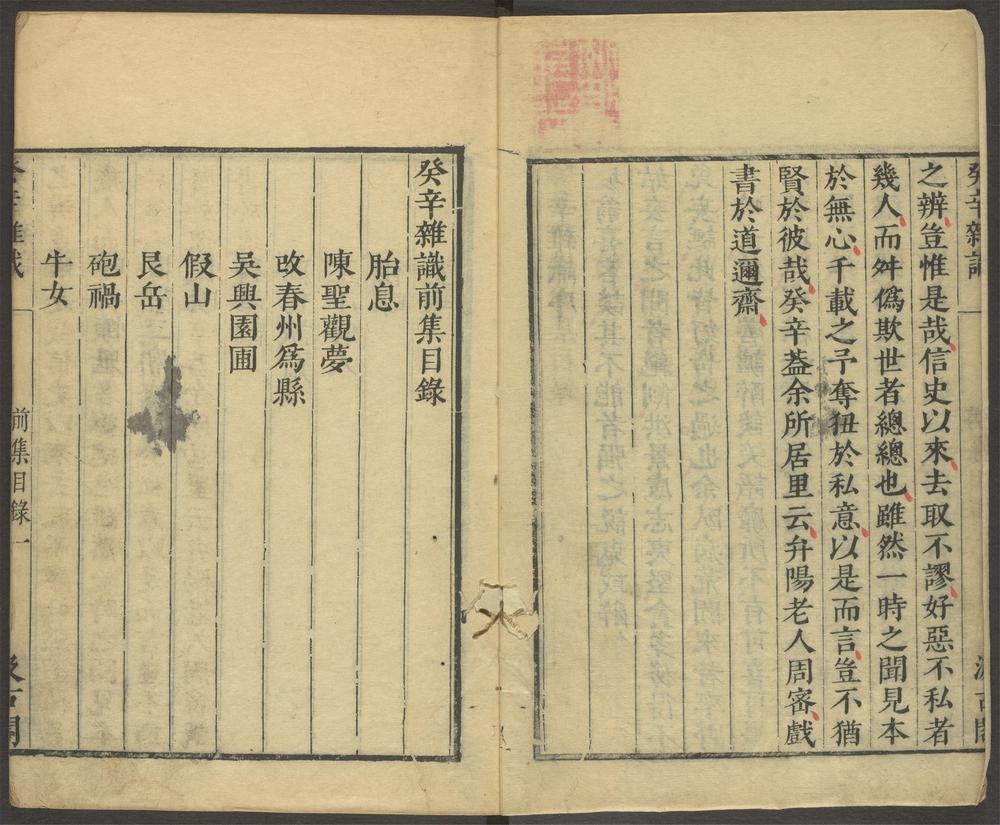 癸辛雜識 一 汲古閣
之辨豈惟是哉信史以來去取不謬好惡不私者
幾人而舛僞欺世者總總也雖然一時之聞見本
於無心千載之予奪狃於私意以是而言豈不猶
賢於彼哉癸辛葢余所居里云弁陽老人周密戲
書於道邇齋
癸辛雜識前集目錄
胎息
陳聖觀夢
改春州爲縣
吳興園圃
假山
艮岳
砲禍
牛女
癸辛雜識 前集目錄 一 汲古閣